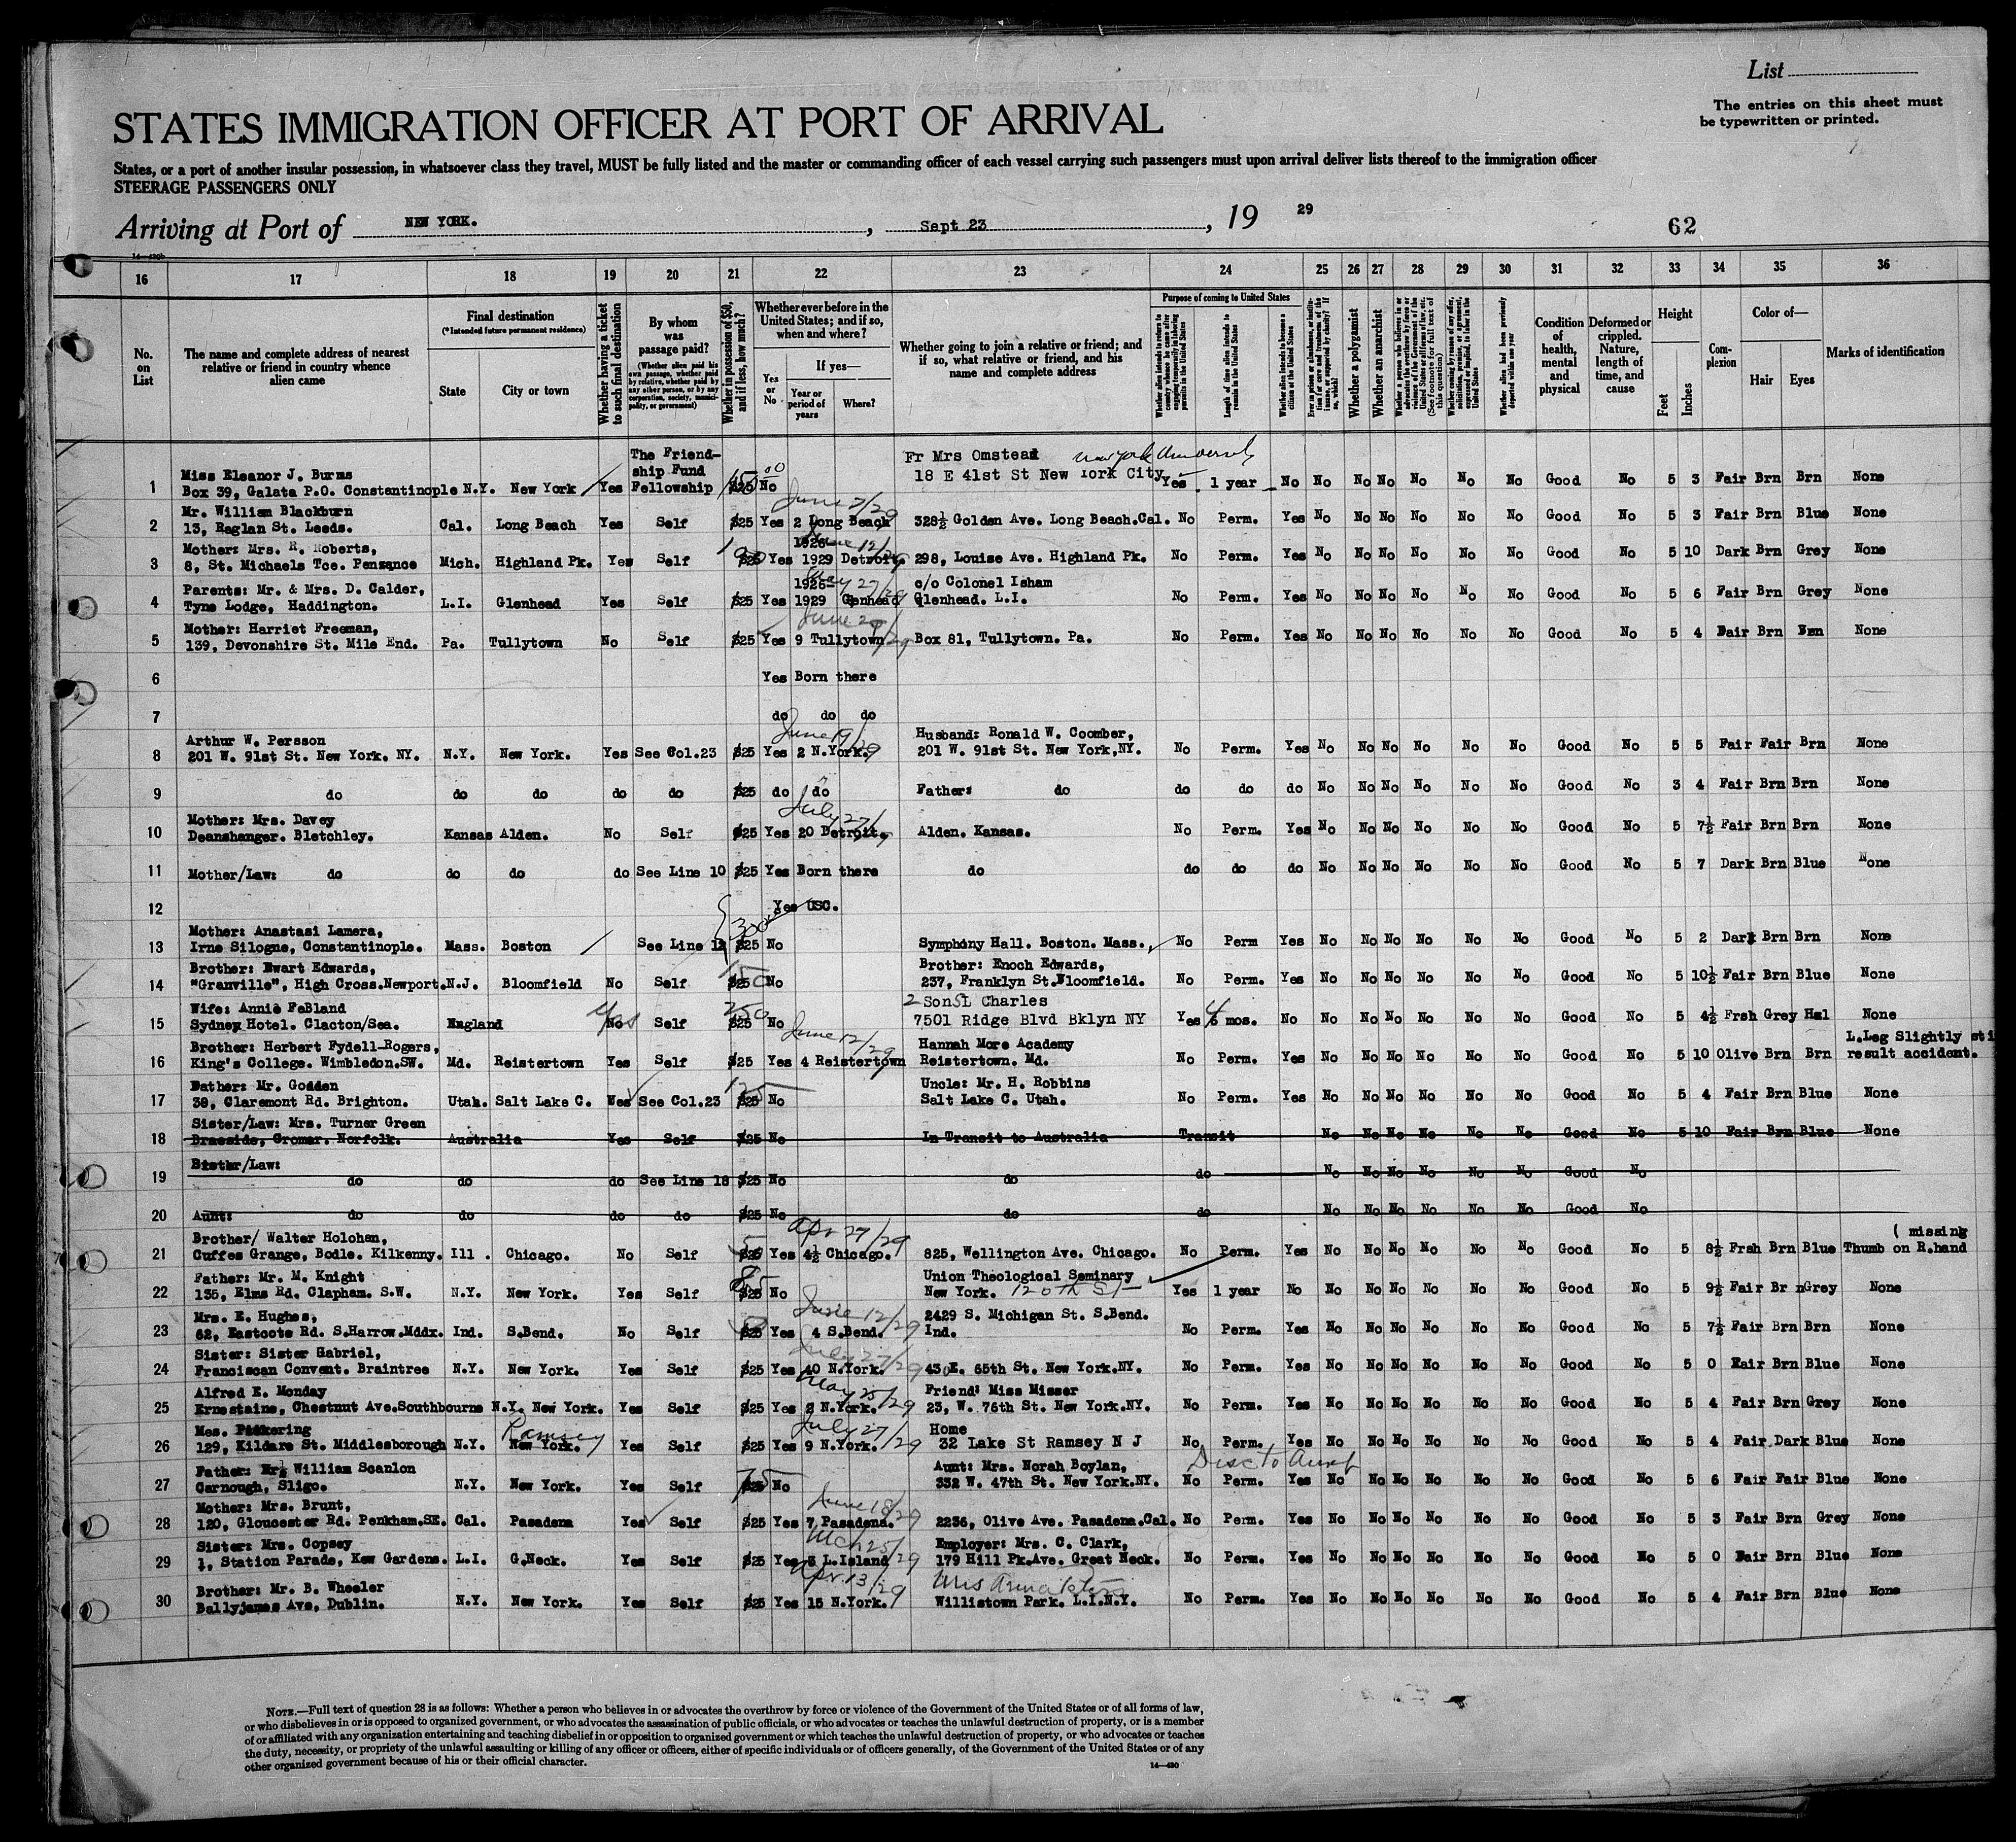 List
The entries on this sheet must
be typewritten or printed.
STATES IMMIGRATION OFFICER AT PORT OF ARRIVAL
States, or a port of another insular possession, in whatsoever class they travel, MUST be fully listed and the master or commanding officer of each vessel carrying such passengers must upon arrival deliver lists thereof to the immigration officer
STEERAGE PASSENGERS ONLY
Arriving at Port of NEW YORK. , Sept 23 , 19 29 62
14—430b
16 17 18 19 20 21 22 23 24 25 26 27 28 29 30 31 32 33 34 35 36
No. on List
The name and complete address of nearest relative or friend in country whence alien came
Final destination
(*Intended future permanent residence)
State
City or town
Whether having a ticket to such final destination
By whom was passage paid?
(Whether alien paid his own passage, whether paid by relative, whether paid by any other person, or by any corporation, society, municipality, or government)
Whether in possession of $50, and if less, how much?
Whether ever before in the United States; and if so, when and where?
Yes or No
If yes—
Year or period of years
Where?
Whether going to join a relative or friend; and if so, what relative or friend, and his name and complete address
Purpose of coming to United States
Whether alien intends to return to country whence he came after engaging temporarily in laboring pursuits in the United States
Length of time alien intends to remain in the United States
Whether alien intends to become a citizen of the United States
Ever in prison or almshouse, or institution for care and treatment of the insane, or supported by charity? If so, which?
Whether a polygamist
Whether an anarchist
Whether a person who believes in or advocates the overthrow by force or violence of the Government of the United States or all forms of law, etc. (See footnote for full text of this question)
Whether coming by reason of any offer, solicitation, promise, or agreement, expressed or implied, to labor in the United States
Whether alien had been previously deported within one year
Condition of health, mental and physical
Deformed or crippled. Nature, length of time, and cause
Height
Feet
Inches
Complexion
Color of—
Hair
Eyes
Marks of identification
The Friend- Fr Mrs Omstead New York University
Miss Eleanor J. Burns ship Fund 18 E 41st St New York City
1 Box 39, Galata P.O. Constantinople N.Y. New York Yes Fellowship $25 No Yes 1 year No No No No No No No Good No 5 3 Fair Brn Brn None
Mr. William Blackburn June 7/29
2 13, Raglan St. Leeds. Cal. Long Beach Yes Self $25 Yes 2 Long Beach 328½ Golden Ave. Long Beach.Cal. No Perm. Yes No No No No No No Good No 5 3 Fair Brn Blue None
Mother: Mrs. R. Roberts, 1926 June 12/29
3 8, St. Michaels Tce. Penzance Mich. Highland Pk. Yes Self $25 Yes 1929 Detroit. 298, Louise Ave. Highland Pk. No Perm. Yes No No No No No No Good No 5 10 Dark Brn Grey None
Parents: Mr. & Mrs. D. Calder, May 27/29 c/o Colonel Isham
4 Tyne Lodge, Haddington. L.I. Glenhead Yes Self $25 Yes 1929 Glenhead Glenhead. L.I. No Perm. Yes No No No No No No Good No 5 6 Fair Brn Grey None
Mother: Harriet Freeman,
5 139, Devonshire St. Mile End. Pa. Tullytown No Self $25 Yes 9 Tullytown Box 81, Tullytown. Pa. No Perm. Yes No No No No No No Good No 5 4 Fair Brn Brn None
6 Yes Born there
7 do do do
Arthur W. Persson June 19/29 Husband: Ronald W. Coomber,
8 201 W. 91st St. New York. NY. N.Y. New York. Yes See Col.23 $25 Yes 2 N.York. 201 W. 91st St. New York,NY. No Perm. Yes No No No No No No Good No 5 5 Fair Fair Brn None
9 do do do do do $25 do do Father: do do do do No No No No No No Good No 3 4 Fair Brn Brn None
Mother: Mrs. Davey July 27/29
10 Deanshanger. Bletchley. Kansas Alden. No Self $25 Yes 20 Detroit. Alden. Kansas. No Perm. Yes No No No No No No Good No 5 7½ Fair Brn Brn None
11 Mother/Law: do do do do See Line 10 $25 Yes Born there do do do do No No No No No No Good No 5 7 Dark Brn Blue None
12 Yes USC.
Mother: Anastasi Lamera, 300
13 Irne Silogne, Constantinople. Mass. Boston See Line 12 $25 No Symphony Hall. Boston. Mass. No Perm Yes No No No No No No Good No 5 2 Dark Brn Brn None
Brother: Ewart Edwards, 150 Brother: Enoch Edwards,
14 "Granville", High Cross.Newport. N.J. Bloomfield No Self $25 No 237, Franklyn St.Bloomfield. No Perm. Yes No No No No No No Good No 5 10½ Fair Brn Blue None
Wife: Annie FeBland Yes 250 2 Sons L Charles
15 Sydney Hotel. Clacton/Sea. England No Self $25 No 7501 Ridge Blvd Bklyn NY Yes 6 mos. No No No No No No No Good No 5 4½ Frsh Grey Hzl None
Brother: Herbert Fydell-Rogers, June 12/29 Hannah More Academy L.Leg Slightly sti
16 King's College. Wimbledon.SW. Md. Reistertown Yes Self $25 Yes 4 Reistertown Reistertown. Md. No Perm. Yes No No No No No No Good No 5 10 Olive Brn Brn result accident.
Father: Mr. Godden 125 Uncle: Mr. H. Robbins
17 38, Claremont Rd. Brighton. Utah. Salt Lake C. Yes See Col.23 $25 No Salt Lake C. Utah. No Perm. Yes No No No No No No Good No 5 4 Fair Brn Blue None
Sister/Law: Mrs. Turner Green
18 Braeside, Cromer. Norfolk. Australia Yes Self $25 No In Transit to Australia Transit No No No No No No Good No 5 10 Fair Brn Blue None
Sister/Law:
19 do do do See Line 18 $25 No do do No No No No No No Good No
20 Aunt: do do do do $25 No do do No No No No No No Good No
Brother/ Walter Holohan, Apr 27/29 ( missing
21 Cuffes Grange, Bodle. Kilkenny. Ill. Chicago. No Self $25 Yes 4½ Chicago. 825, Wellington Ave. Chicago. No Perm. Yes No No No No No No Good No 5 8½ Frsh Brn Blue Thumb on R.hand
Father: Mr. M. Knight Union Theological Seminary
22 135, Elms Rd. Clapham. S.W. N.Y. New York. Yes Self $25 No New York. 120th St Yes 1 year No No No No No No No Good No 5 9½ Fair Br nGrey None
Mrs. E. Hughes, June 12/29 2429 S. Michigan St. S.Bend.
23 62, Eastcote Rd. S.Harrow.Mddx. Ind. S.Bend. No Self $25 Yes 4 S.Bend. Ind. No Perm. Yes No No No No No No Good No 5 7½ Fair Brn Brn None
Sister: Sister Gabriel, July 27/29
24 Franciscan Convent. Braintree N.Y. New York. Yes Self $25 Yes 40 N.York. 430 E. 65th St. New York.NY. No Perm. Yes No No No No No No Good No 5 0 Fair Brn Blue None
Alfred E. Monday May 25/29 Friend: Miss Misser
25 Ernestaine, Chestnut Ave.Southbourne N.Y. New York. Yes Self $25 Yes N.York. 23, W. 76th St. New York.NY. No Perm. Yes No No No No No No Good No 5 4 Fair Brn Grey None
Mes. Pickering Ramsey July 27/29 Home
26 129, Kildare St. Middlesborough N.Y. New York. Yes Self $25 Yes 9 N.York. 32 Lake St Ramsey N J No Perm. Yes No No No No No No Good No 5 4 Fair Dark Blue None
Father: Mr. William Scanlon 75 Aunt: Mrs. Norah Boylan, Disc to Aunt
27 Carnough, Sligo. N.Y. New York. Yes Self $25 No 332 W. 47th St. New York.NY. No Perm. Yes No No No No No No Good No 5 6 Fair Fair Blue None
Mother: Mrs. Brunt, June 18/29
28 120, Gloucester Rd. Penkham.SE. Cal. Pasadena Yes Self $25 Yes 7 Pasadena. 2236, Olive Ave. Pasadena.Cal. No Perm. Yes No No No No No No Good No 5 3 Fair Brn Grey None
Sister: Mrs. Copsey Mch 25/29 Employer: Mrs. C. Clark,
29 1. Station Parade, Kew Gardens. L.I. G.Neck. Yes Self $25 Yes L.Island 179 Hill Pk.Ave. Great Neck. No Perm. Yes No No No No No No Good No 5 0 Fair Brn Blue None
Brother: Mr. B. Wheeler Apr. 13/29 Mrs Anna
30 Ballyjames Ave, Dublin. N.Y. New York. Yes Self $25 Yes 15 N.York. Willistown Park. L.I.N.Y. No Perm. Yes No No No No No No Good No 5 4 Fair Brn Blue None
NOTE.—Full text of question 28 is as follows: Whether a person who believes in or advocates the overthrow by force or violence of the Government of the United States or of all forms of law,
or who disbelieves in or is opposed to organized government, or who advocates the assassination of public officials, or who advocates or teaches the unlawful destruction of property, or is a member
of or affiliated with any organization entertaining and teaching disbelief in or opposition to organized government or which teaches the unlawful destruction of property, or who advocates or teaches
the duty, necessity, or propriety of the unlawful assaulting or killing of any officer or officers, either of specific individuals or of officers generally, of the Government of the United States or of any
other organized government because of his or their official character.
14—430